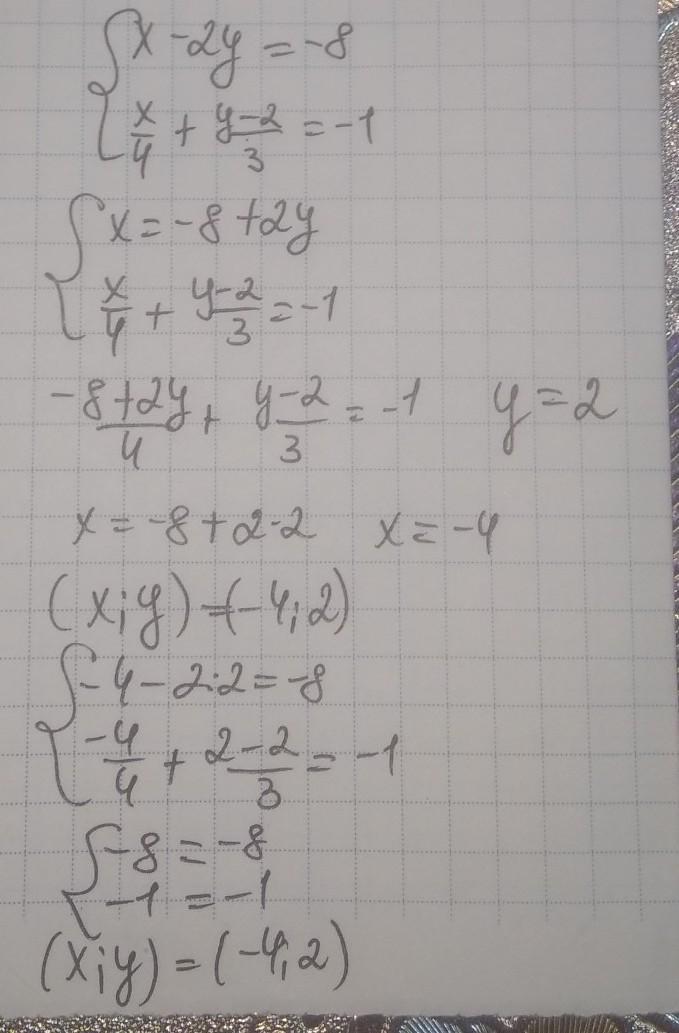 {x - 2y = -8
x/4 + (y-2)/3 = -1
{x = -8 + 2y
x/4 + (y-2)/3 = -1
(-8+2y)/4 + (y-2)/3 = -1 y = 2
x = -8 + 2·2 x = -4
(x;y) = (-4;2)
{-4 - 2·2 = -8
-4/4 + (2-2)/3 = -1
{-8 = -8
-1 = -1
(x;y) = (-4;2)